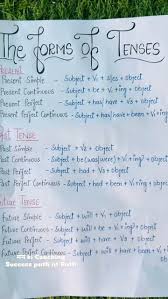 The Forms of Tenses
Present
Present Simple - Subject + V₁ + s/es + object
Present Continuous - Subject + be + V₁ + ing + object
Present Perfect - Subject + has/have + V₃ + object
Present Perfect Continuous - Subject + has/have + been + V₁ + ing + object
Past Tense
Past Simple - Subject + V₂ + object
Past Continuous - Subject + be (was/were) + V₁ + ing + object
Past Perfect - Subject + had + V₃ + object
Past Perfect Continuous - Subject + had + been + V₁ + ing + object
Future Tense
Future Simple - Subject + will + V₁ + object
Future Continuous - Subject + will + be + V₁ + ing + object
Future Perfect - Subject + will + have + V₃ + object
Success path